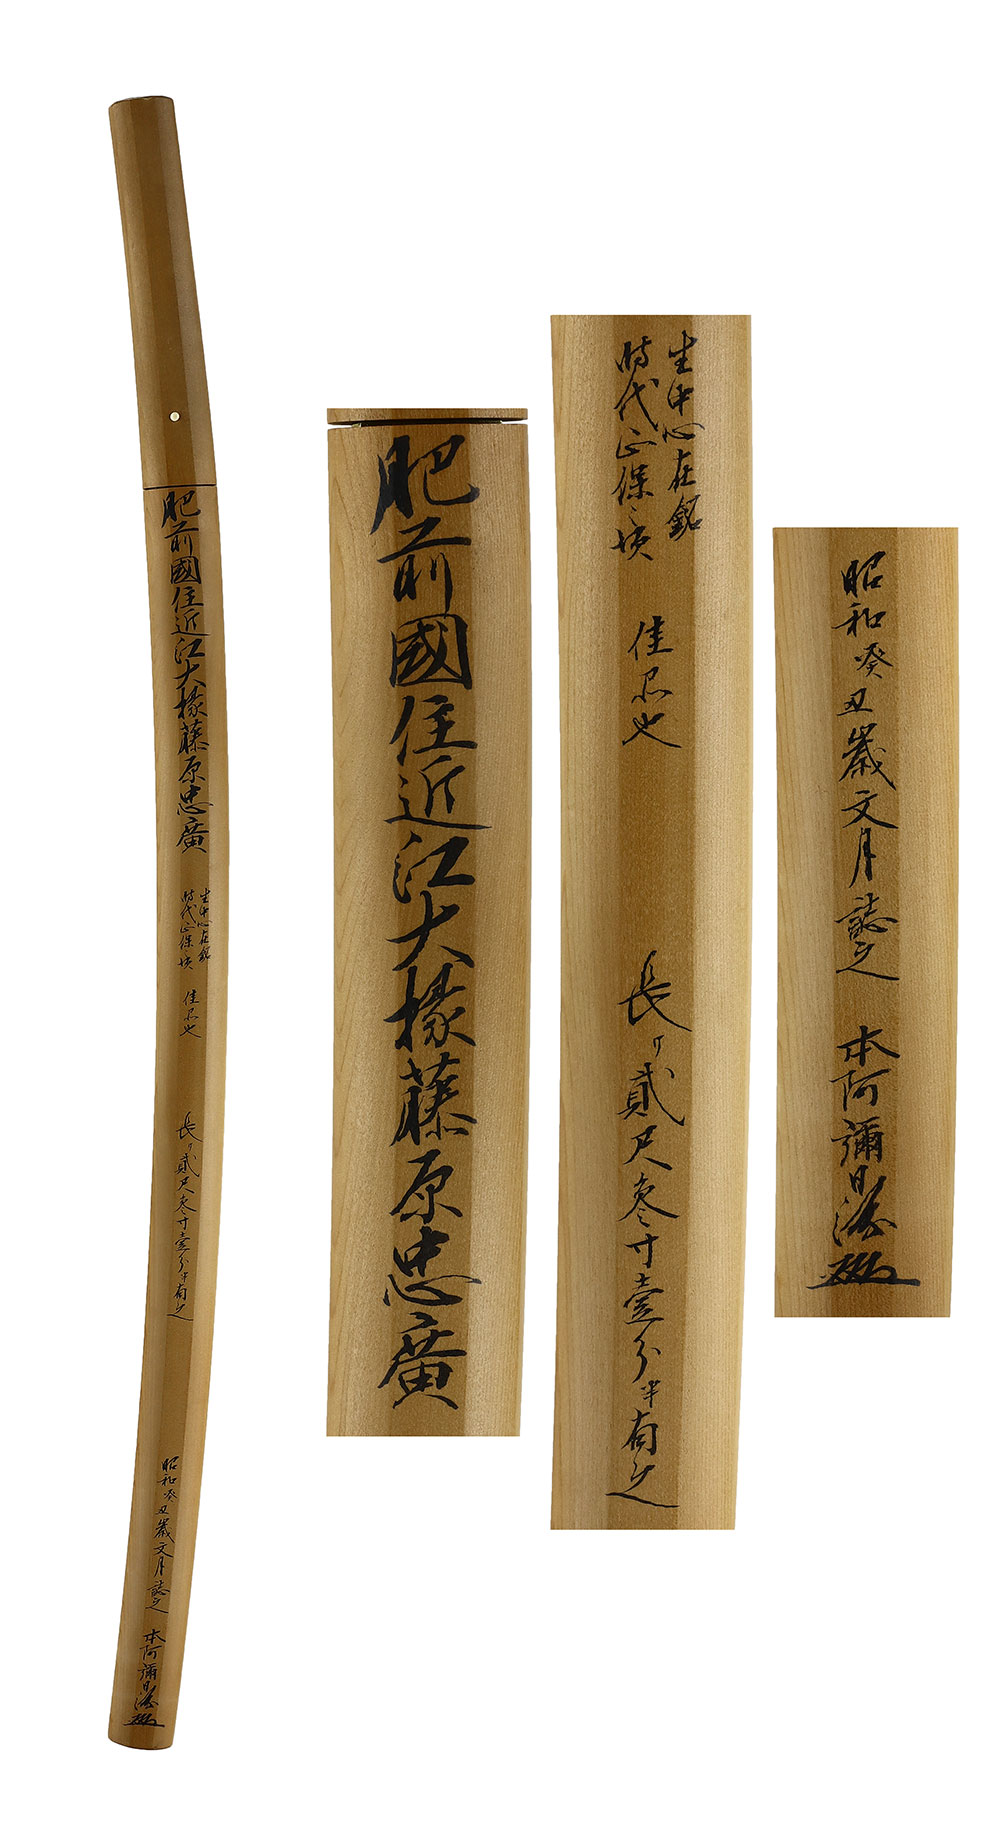 肥前國住近江大掾藤原忠廣
生中心在銘
時代正保之頃
佳品也
長サ貳尺参寸壹分半有之
昭和癸丑歳文月誌之
本阿彌日洲
肥前國住近江大掾藤原忠廣
生中心在銘
時代正保之頃
佳品也
長サ貳尺参寸壹分半有之
昭和癸丑歳文月誌之
本阿彌日洲